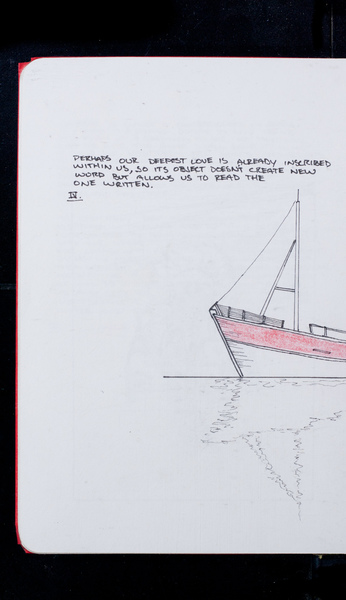 PERHAPS OUR DEEPEST LOVE IS ALREADY INSCRIBED
WITHIN US, SO ITS OBJECT DOESN'T CREATE NEW
WORD BUT ALLOWS US TO READ THE
ONE WRITTEN.
IV.